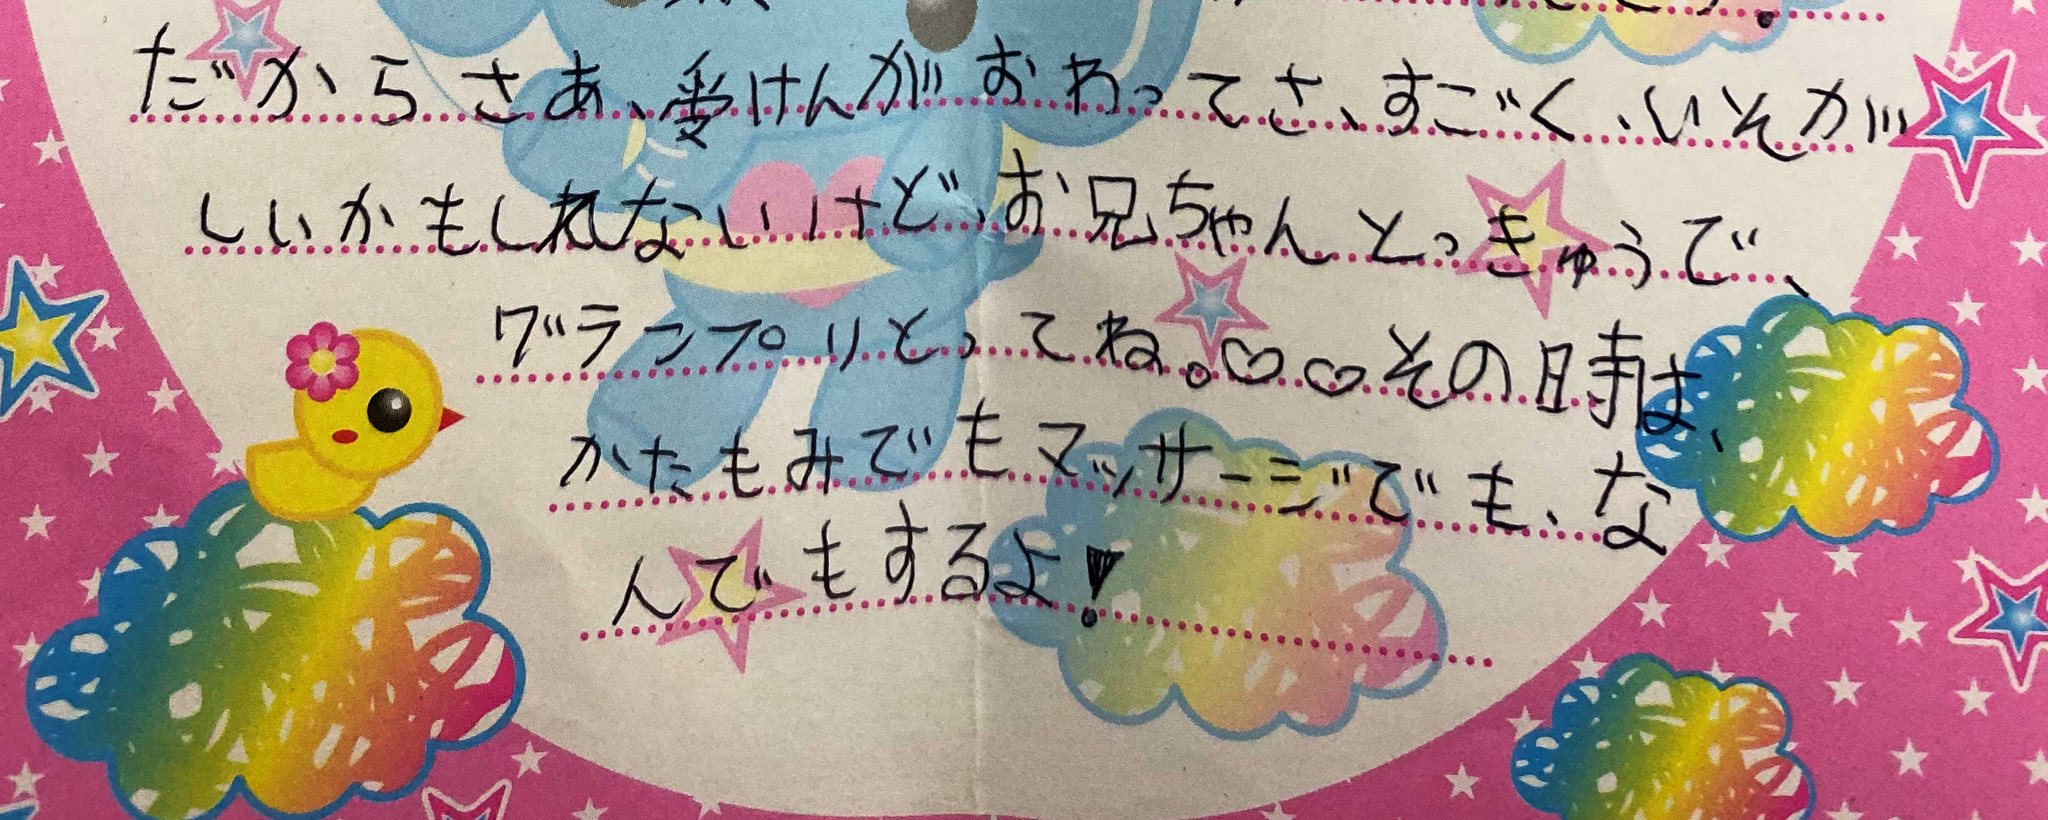 だからさあ、受けんがおわってさ、すごく、いそが
しいかもしれないけど、お兄ちゃんとっきゅうで、
グランプリとってね。♡♡その時は、
かたもみでもマッサージでも、な
んでもするよ!